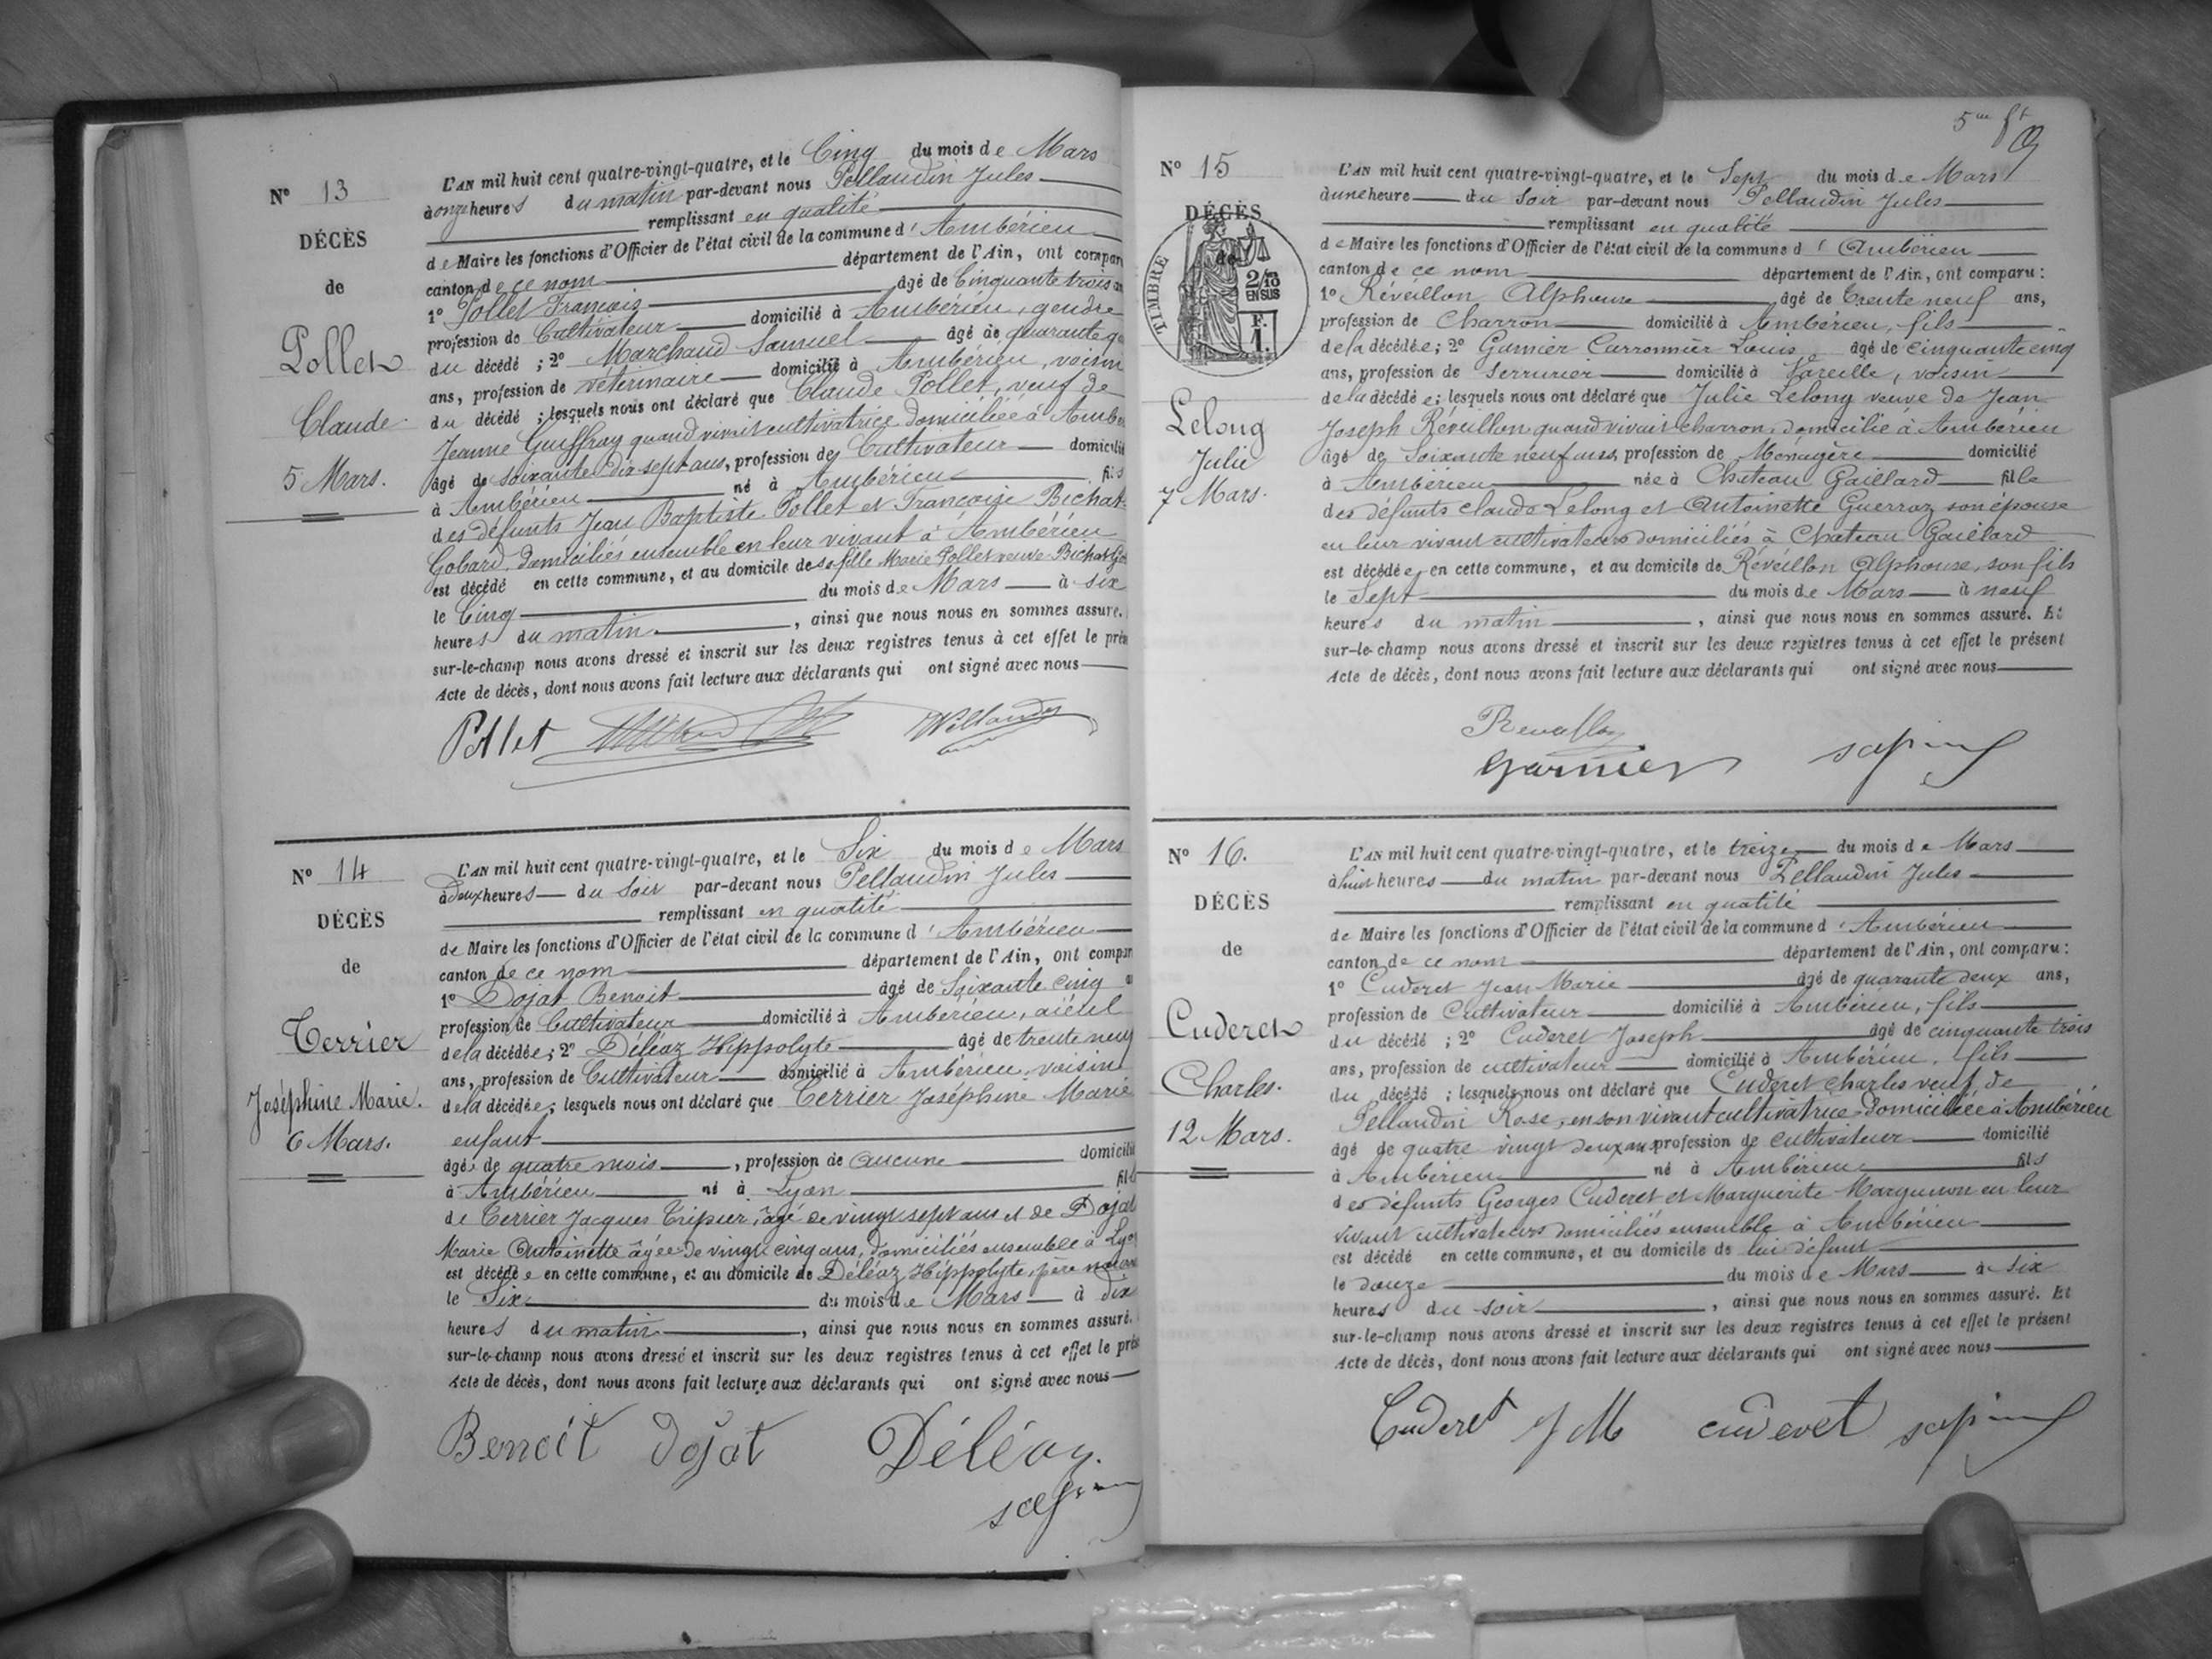 N° 13
DÉCÈS
de
Pollet
Claude
5 Mars.
L'AN mil huit cent quatre-vingt-quatre, et le Cinq du mois de Mars
à onze heures du matin par-devant nous Pellaudin Jules
remplissant en qualité
de Maire les fonctions d'Officier de l'état civil de la commune d'Ambérieu
canton de ce nom département de l'Ain, ont compar
1° Pollet François âgé de Cinquante trois
profession de Cultivateur domicilié à Ambérieu, gendre
du décédé ; 2° Marchand Samuel âgé de quarante
ans, profession de vétérinaire domicilié à Ambérieu, voisin
du décédé ; lesquels nous ont déclaré que Claude Pollet, veuf de
Jeanne Guiffray quand vivait cultivatrice domiciliée à Ambé
âgé de soixante Dix-sept ans, profession de Cultivateur domicilié
à Ambérieu né à Ambérieu fils
des défunts Jean Baptiste Pollet et Françoise Bichat
Gobard, domiciliés ensemble en leur vivant à Ambérieu
est décédé en cette commune, et au domicile de sa fille Marie Pollet veuve Bichat
le Cinq du mois de Mars à six
heures du matin, ainsi que nous nous en sommes assuré.
sur-le-champ nous avons dressé et inscrit sur les deux registres tenus à cet effet le prés
Acte de décès, dont nous avons fait lecture aux déclarants qui ont signé avec nous
Pollet
N° 14
DÉCÈS
de
Terrier
Joséphine Marie.
6 Mars.
L'AN mil huit cent quatre-vingt-quatre, et le Six du mois de Mars
à Deux heures du Soir par-devant nous Pellaudin Jules
remplissant en qualité
de Maire les fonctions d'Officier de l'état civil de la commune d'Ambérieu
canton de ce nom département de l'Ain, ont compar
1° Dojat Benoit âgé de Soixante cinq
profession de Cultivateur domicilié à Ambérieu, aïeul
de la décédée ; 2° Déléaz Hippolyte âgé de trente neuf
ans, profession de Cultivateur domicilié à Ambérieu, voisin
de la décédée ; lesquels nous ont déclaré que Terrier Joséphine Marie
enfant
âgée de quatre mois, profession de aucune domicilié
à Ambérieu né à Lyon fil
de Terrier Jacques Tripier, âgé de vingt sept ans et de Dojat
Marie Antoinette âgée de vingt cinq ans, domiciliés ensemble à Lyo
est décédée en cette commune, et au domicile de Déléaz Hippolyte, père
le Six du mois de Mars à dix
heures du matin, ainsi que nous nous en sommes assuré.
sur-le-champ nous avons dressé et inscrit sur les deux registres tenus à cet effet le prés
Acte de décès, dont nous avons fait lecture aux déclarants qui ont signé avec nous
Benoit dojat Déléaz
N° 15
DÉCÈS
de
TIMBRE
2/10
EN SUS
F.
1.
Lelong
Julie
7 Mars.
L'AN mil huit cent quatre-vingt-quatre, et le Sept du mois de Mars
à une heure du Soir par-devant nous Pellaudin Jules
remplissant en qualité
de Maire les fonctions d'Officier de l'état civil de la commune d'Ambérieu
canton de ce nom département de l'Ain, ont comparu :
1° Réveillon Alphonse âgé de trente neuf ans,
profession de Charron domicilié à Ambérieu, fils
de la décédée ; 2° Garnier Louis âgé de cinquante cinq
ans, profession de serrurier domicilié à Vareille, voisin
de la décédée ; lesquels nous ont déclaré que Julie Lelong veuve de Jean
Joseph Réveillon quand vivait charron domicilié à Ambérieu
âgé de Soixante neuf ans, profession de Ménagère domicilié
à Ambérieu née à Chateau Gaillard fille
des défunts Claude Lelong et Antoinette Guerraz son épouse
en leur vivant cultivateurs domiciliés à Chateau Gaillard
est décédée en cette commune, et au domicile de Réveillon Alphonse, son fils
le Sept du mois de Mars à neuf
heures du matin, ainsi que nous nous en sommes assuré. Et
sur-le-champ nous avons dressé et inscrit sur les deux registres tenus à cet effet le présent
Acte de décès, dont nous avons fait lecture aux déclarants qui ont signé avec nous
Reveillon
Garnier
N° 16.
DÉCÈS
de
Cuderet
Charles.
12 Mars.
L'AN mil huit cent quatre-vingt-quatre, et le treize du mois de Mars
à huit heures du matin par-devant nous Pellaudin Jules
remplissant en qualité
de Maire les fonctions d'Officier de l'état civil de la commune d'Ambérieu
canton de ce nom département de l'Ain, ont comparu :
1° Cuderet Jean Marie âgé de quarante deux ans,
profession de Cultivateur domicilié à Ambérieu, fils
du décédé ; 2° Cuderet Joseph âgé de cinquante trois
ans, profession de cultivateur domicilié à Ambérieu, fils
du décédé ; lesquels nous ont déclaré que Cuderet Charles veuf de
Pellaudin Rose, en son vivant cultivatrice domiciliée à Ambérieu
âgé de quatre vingt deux ans profession de cultivateur domicilié
à Ambérieu né à Ambérieu fils
des défunts Georges Cuderet et Marguerite Marguinon en leur
vivant cultivateurs domiciliés ensemble à Ambérieu
est décédé en cette commune, et au domicile de lui défunt
le douze du mois de Mars à six
heures du soir, ainsi que nous nous en sommes assuré. Et
sur-le-champ nous avons dressé et inscrit sur les deux registres tenus à cet effet le présent
Acte de décès, dont nous avons fait lecture aux déclarants qui ont signé avec nous
Cuderet J M cuderet